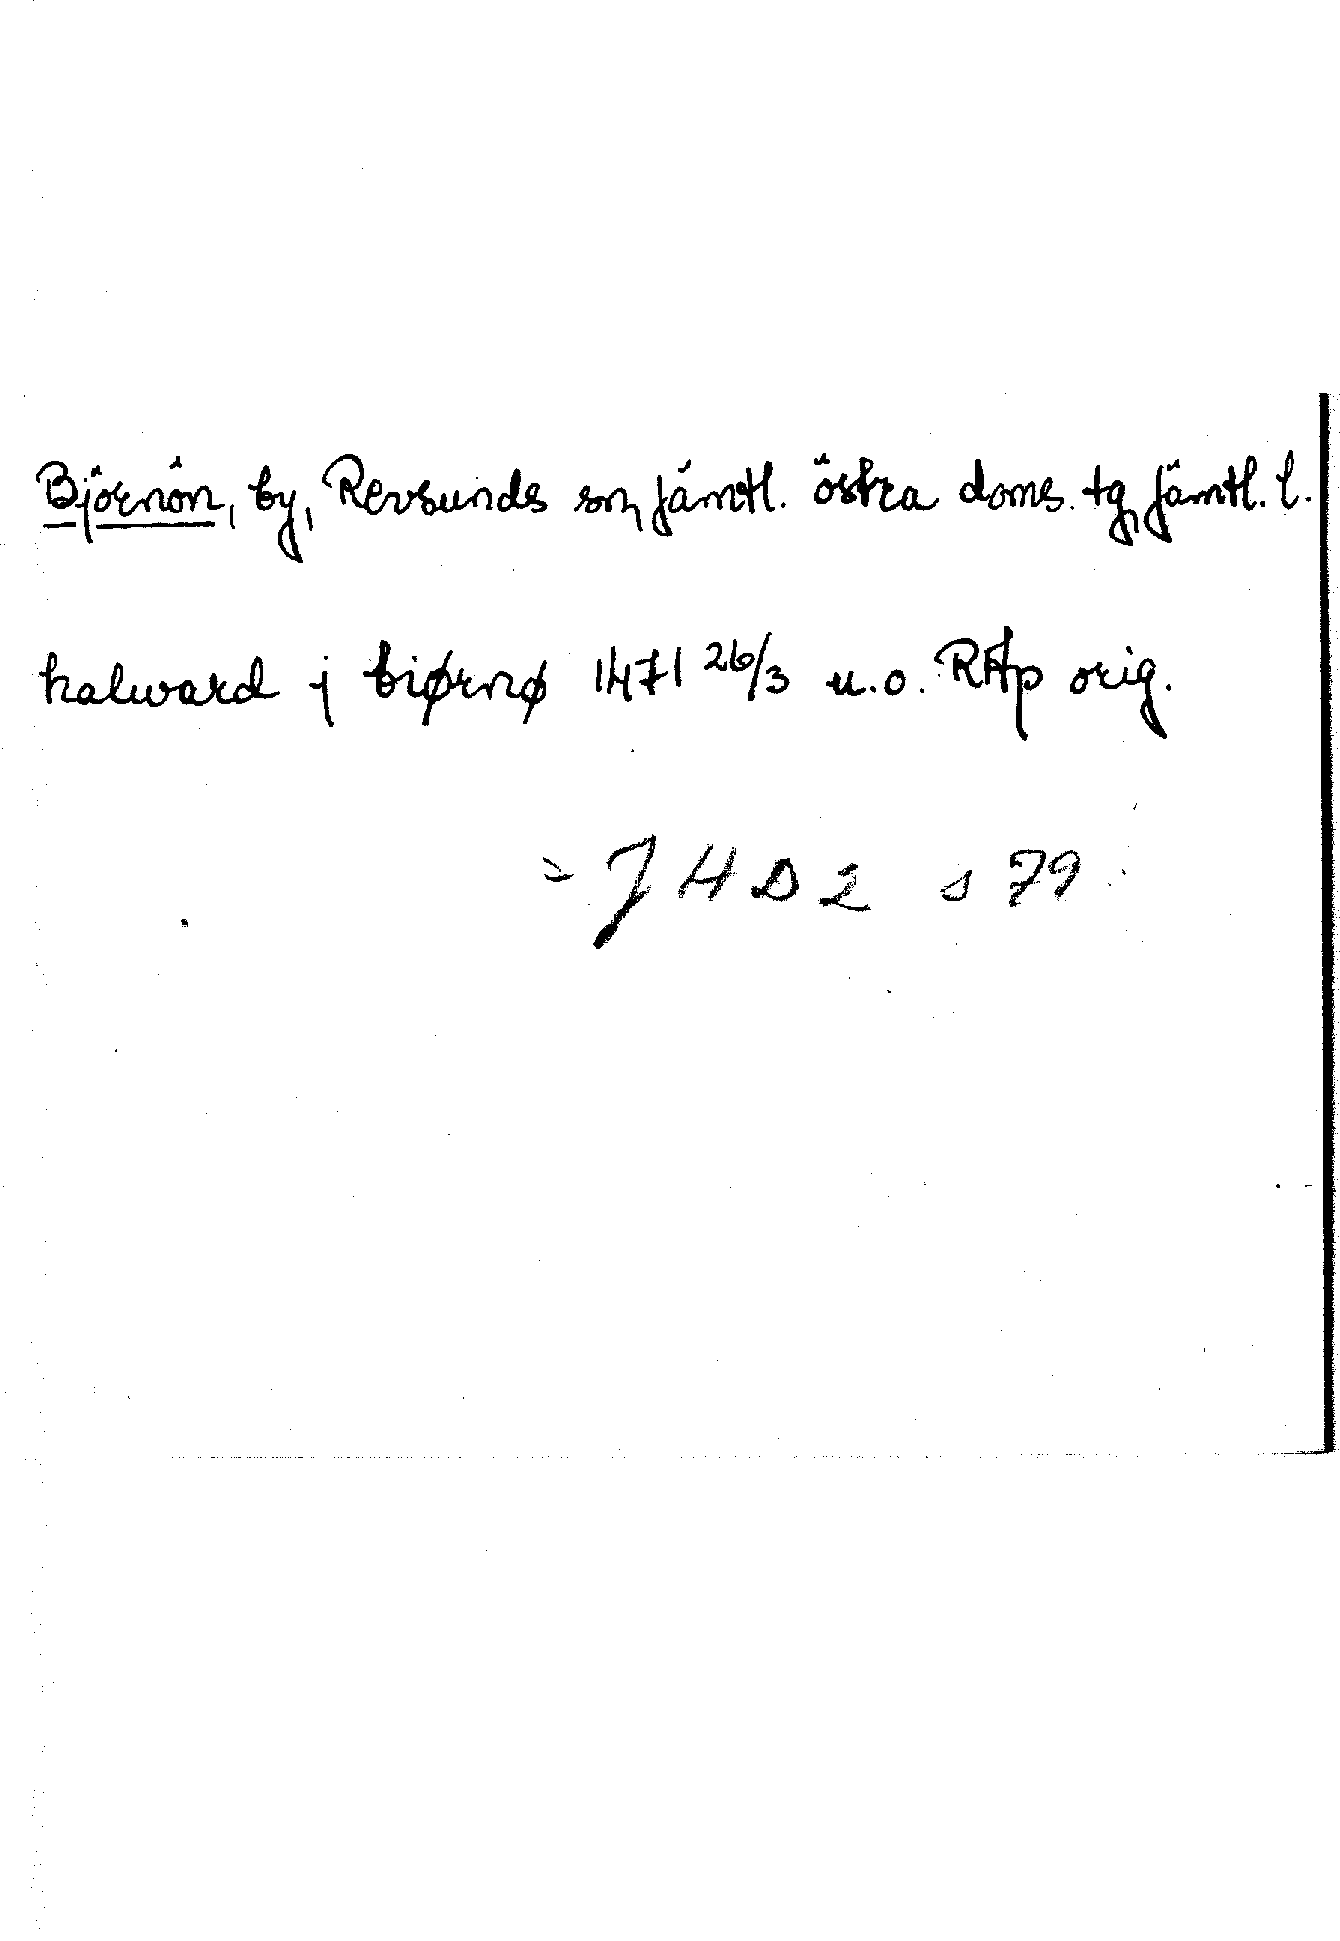 Björnön, by, Revsunds sn, Jämtl. östra doms. tg, Jämtl. l.
halward j biørnø 1471 26/3 u.o. RAp orig.
= JHD 2 s 79